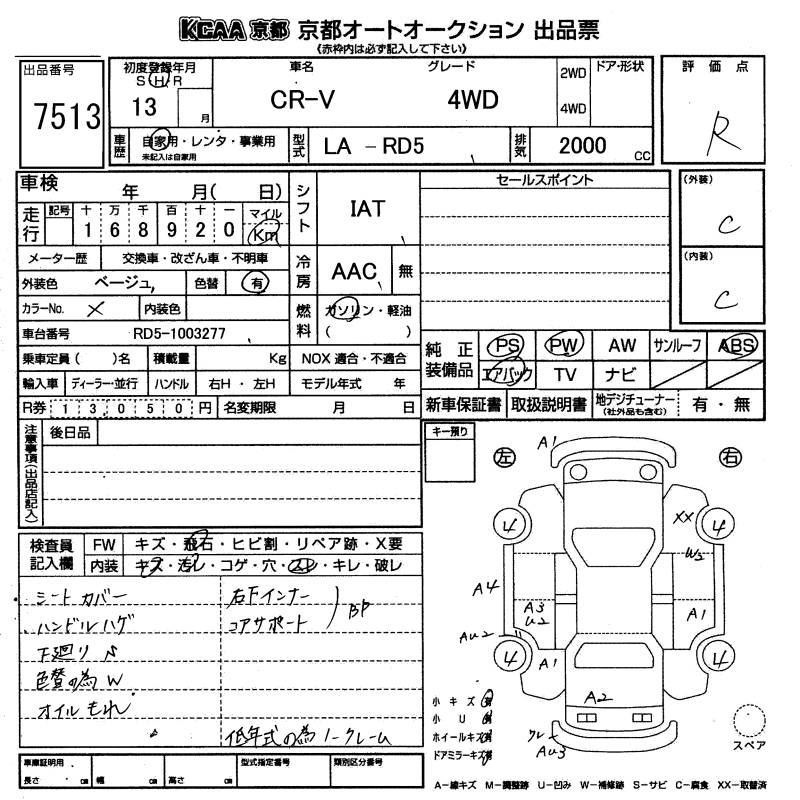 KCAA 京都 京都オートオークション 出品票
《赤枠内は必ず記入して下さい》
出品番号
7513
初度登録年月
S H R
13 月
車名 グレード
CR-V 4WD
2WD
4WD
ドア・形状
評価点
R
車歴
自家用・レンタ・事業用
未記入は自家用
型式
LA-RD5
排気
2000 cc
車検 年 月( 日)
走行
記号 十 万 千 百 十 一 マイル
1 6 8 9 2 0 Km
シフト
IAT
メーター歴 交換車・改ざん車・不明車
外装色 ベージュ 色替 有
冷房
AAC 無
カラーNo. X 内装色
燃料
ガソリン・軽油
( )
車台番号 RD5-1003277
乗車定員( )名 積載量 Kg NOX 適合・不適合
輸入車 ディーラー・並行 ハンドル 右H・左H モデル年式 年
R券 13,050 円 名変期限 月 日
セールスポイント
(外装)
C
(内装)
C
純正装備品
PS PW AW サンルーフ ABS
エアバック TV ナビ
新車保証書 取扱説明書 地デジチューナー(社外品も含む) 有・無
注意事項(出品店記入)
後日品
キー預り
検査員記入欄
FW キズ・飛石・ヒビ割・リペア跡・X要
内装 キズ・汚レ・コゲ・穴・スレ・キレ・破レ
シートカバー
ハンドルハゲ
下廻りS
色替の為W
オイルもれ
右下インナー
コアサポート
BP
低年式の為ノークレーム
車庫証明用
長さ cm 幅 cm 高さ cm
型式指定番号
類別区分番号
左 右
A1
4 4
XX
W2
A4
A3
U2
A1
AU2
4 4
A1
A2
AU3
小キズ有
小U有
ホイールキズ有
ドアミラーキズ有
スペア
A-線キズ M-調整跡 U-凹み W-補修跡 S-サビ C-腐食 XX-取替済